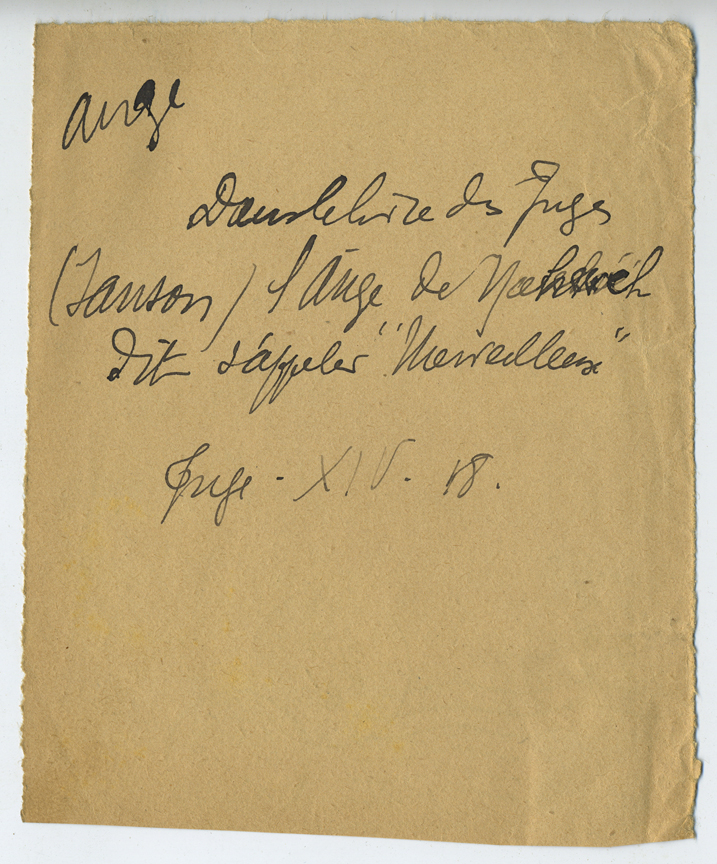 ange
Dans le livre des Juges
(Sanson) l'Ange de
dit s'appeler "Merveilleux"
Juge - XIV. 18.